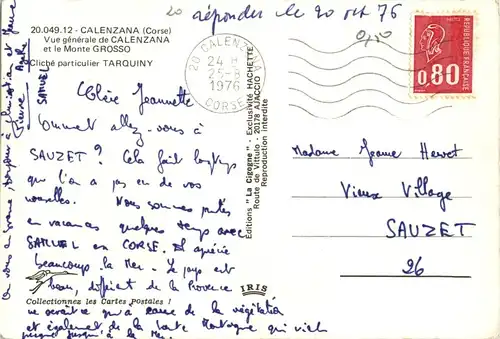 20 répondre le 20 oct 76
0,50
20.049.12 - CALENZANA (Corse)
Vue générale de CALENZANA
et le Monte GROSSO
Cliché particulier TARQUINY
20 CALENZANA
24 H
25-8
1976
CORSE
REPUBLIQUE FRANÇAISE
0,80
Chère Jeannette
Comment allez-vous à
SAUZET ? Cela fait longtemps
que l'on a pas eu de vos
nouvelles. Nous sommes partis
en vacances quelques temps avec
SAMUEL en CORSE. Il apprécie
beaucoup la Mer. Le pays est
beau, différent de la Provence
ne serait-ce qu'à cause de la végétation
et également de la haute Montagne qui vient
jusqu'à la mer.
On vous embrasse, bonjour à et
Pierre
SAMUEL
Editions "La Cigogne" - Exclusivité HACHETTE
Route de Vittulo - 20178 AJACCIO
Reproduction interdite
IRIS
Collectionnez les Cartes Postales !
Madame Jeanne Hewet
Vieux Village
SAUZET
26